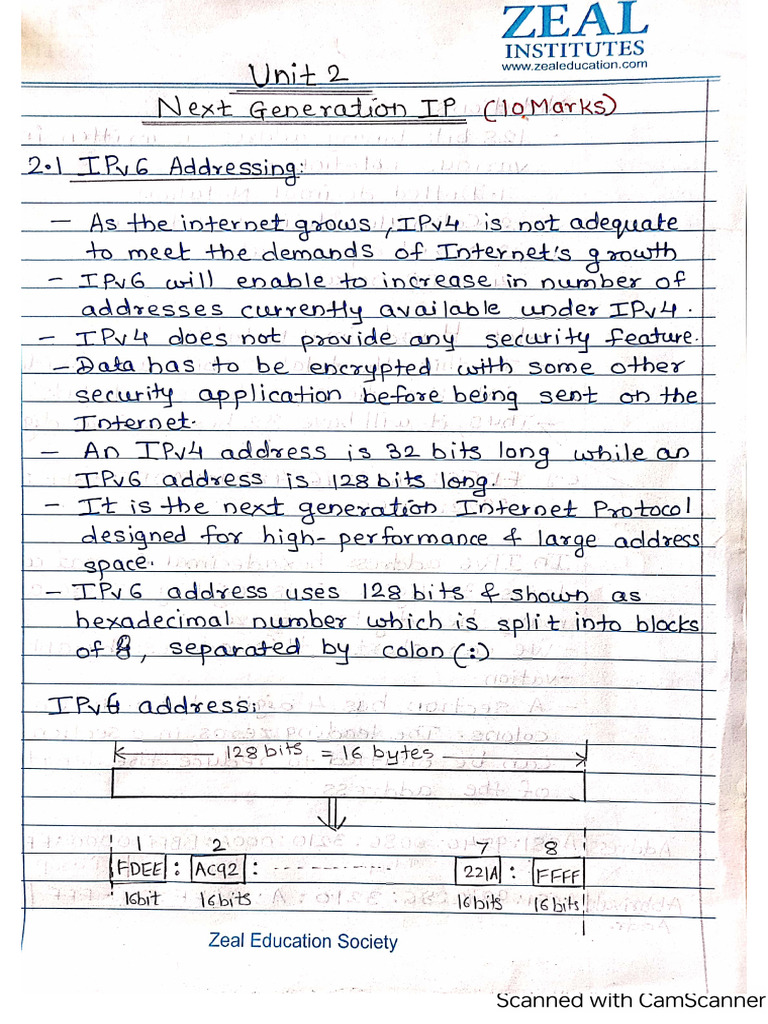 ZEAL
INSTITUTES
www.zealeducation.com
Unit 2
Next Generation IP (10 Marks)
2.1 IPv6 Addressing:
- As the internet grows, IPv4 is not adequate
to meet the demands of Internet's growth
- IPv6 will enable to increase in number of
addresses currently available under IPv4.
- IPv4 does not provide any security feature.
- Data has to be encrypted with some other
security application before being sent on the
Internet.
- An IPv4 address is 32 bits long while an
IPv6 address is 128 bits long.
- It is the next generation Internet Protocol
designed for high-performance & large address
space.
- IPv6 address uses 128 bits & shown as
hexadecimal number which is split into blocks
of 8, separated by colon (:)
IPv6 address:
128 bits = 16 bytes
1 2 7 8
FDEE : AC92 : ............ 221A : FFFF
16bit 16bits 16bits 16bits
Zeal Education Society
Scanned with CamScanner